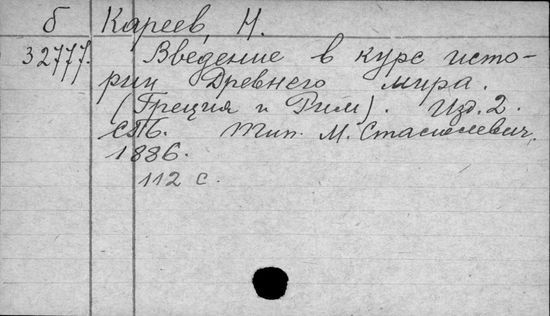 б Кареев, Н.
32777. Введение в курс исто-
рии Древнего мира.
(Греция и Рим). Изд. 2.
СПб. Тип. М. Стасюлевич,
1886.
112 с.